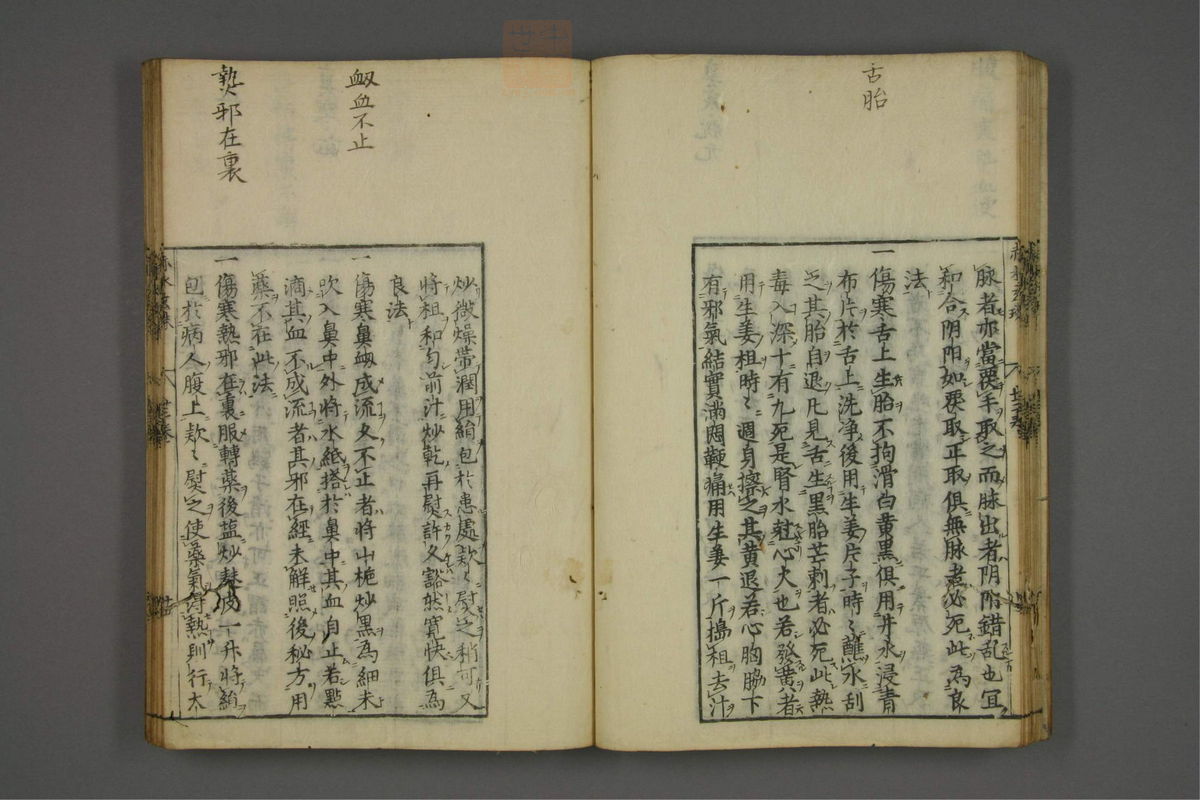 舌胎
脉者亦當覆手取之而脉出者阴阳錯乱也宜
和合阴阳如覆取正取俱無脉者必死此為良
法
一傷寒舌上生胎不拘滑白黄黒俱用井水浸青
布片於舌上洗净後用生姜片子時〻蘸水刮
之其胎自退凡見舌生黒胎芒刺者必死此熱
毒入深十有九死是腎水尅心火也若發黄者
用生姜柤時〻週身擦之其黄退若心胸脇下
有邪氣結實滿悶鞕痛用生姜一斤搗柤去汁
炒微燥帯潤用絹包於患處款〻熨之稍可又
將柤和匀前汁炒乾再熨許久豁然寛快俱為
良法
衂血不止
一傷寒鼻衂成流久不止者將山栀炒黒為細末
吹入鼻中外將水紙搭於鼻中其血自止若點
滴其血不成流者其邪在經未解照後秘方用
藥不在此法
熱邪在裏
一傷寒熱邪在裏服轉藥後盐炒麩皮一升將絹
包於病人腹上款〻熨之使藥氣得熱則行大